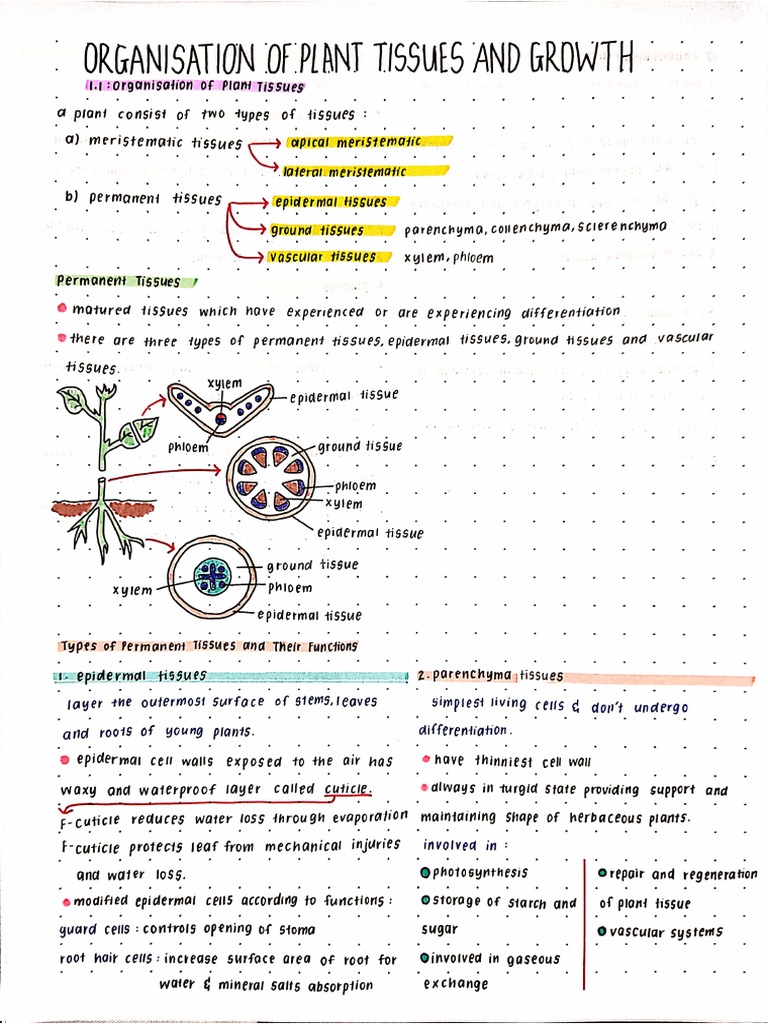 ORGANISATION OF PLANT TISSUES AND GROWTH
1.1 : Organisation of Plant Tissues
a plant consist of two types of tissues :
a) meristematic tissues
apical meristematic
lateral meristematic
b) permanent tissues
epidermal tissues
ground tissues parenchyma, collenchyma, sclerenchyma
vascular tissues xylem, phloem
Permanent Tissues
matured tissues which have experienced or are experiencing differentiation
there are three types of permanent tissues, epidermal tissues, ground tissues and vascular
tissues.
xylem
epidermal tissue
phloem
ground tissue
phloem
xylem
epidermal tissue
ground tissue
xylem
phloem
epidermal tissue
Types of Permanent Tissues and Their Functions
1. epidermal tissues
layer the outermost surface of stems, leaves
and roots of young plants.
epidermal cell walls exposed to the air has
waxy and waterproof layer called cuticle.
F-cuticle reduces water loss through evaporation
F-cuticle protects leaf from mechanical injuries
and water loss.
modified epidermal cells according to functions :
guard cells : controls opening of stoma
root hair cells : increase surface area of root for
water & mineral salts absorption
2. parenchyma tissues
simplest living cells & don't undergo
differentiation.
have thinniest cell wall
always in turgid state providing support and
maintaining shape of herbaceous plants.
involved in :
photosynthesis
storage of starch and
sugar
involved in gaseous
exchange
repair and regeneration
of plant tissue
vascular systems